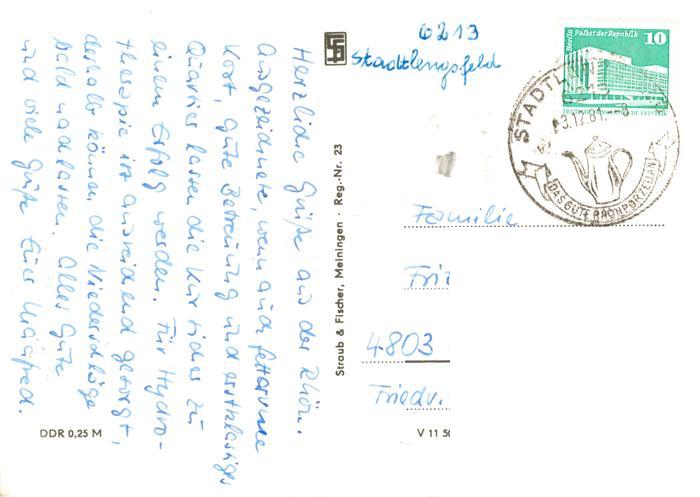 Herzliche Grüße aus der Rhön.
Ausgezeichnete, wenn auch fettarme
Kost, gute Betreuung und erstklassiges
Quartier lassen die Kur sicher zu
einem Erfolg werden. Für Hydro-
therapie ist ausreichend gesorgt,
deshalb können die Niederschläge
bald nachlassen. Alles Gute
und viele Grüße Euer Manfred.
DDR 0,25 M
Straub & Fischer, Meiningen · Reg.-Nr. 23
6213
Stadtlengsfeld
Berlin Palast der Republik
10
STADTL
13.12.81. - 8
DAS GUTE RHÖNPORZELLAN
Familie
Fri
4803
Friedr.
V 11 50